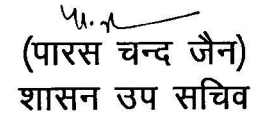 (पारस चन्द जैन)
शासन उप सचिव